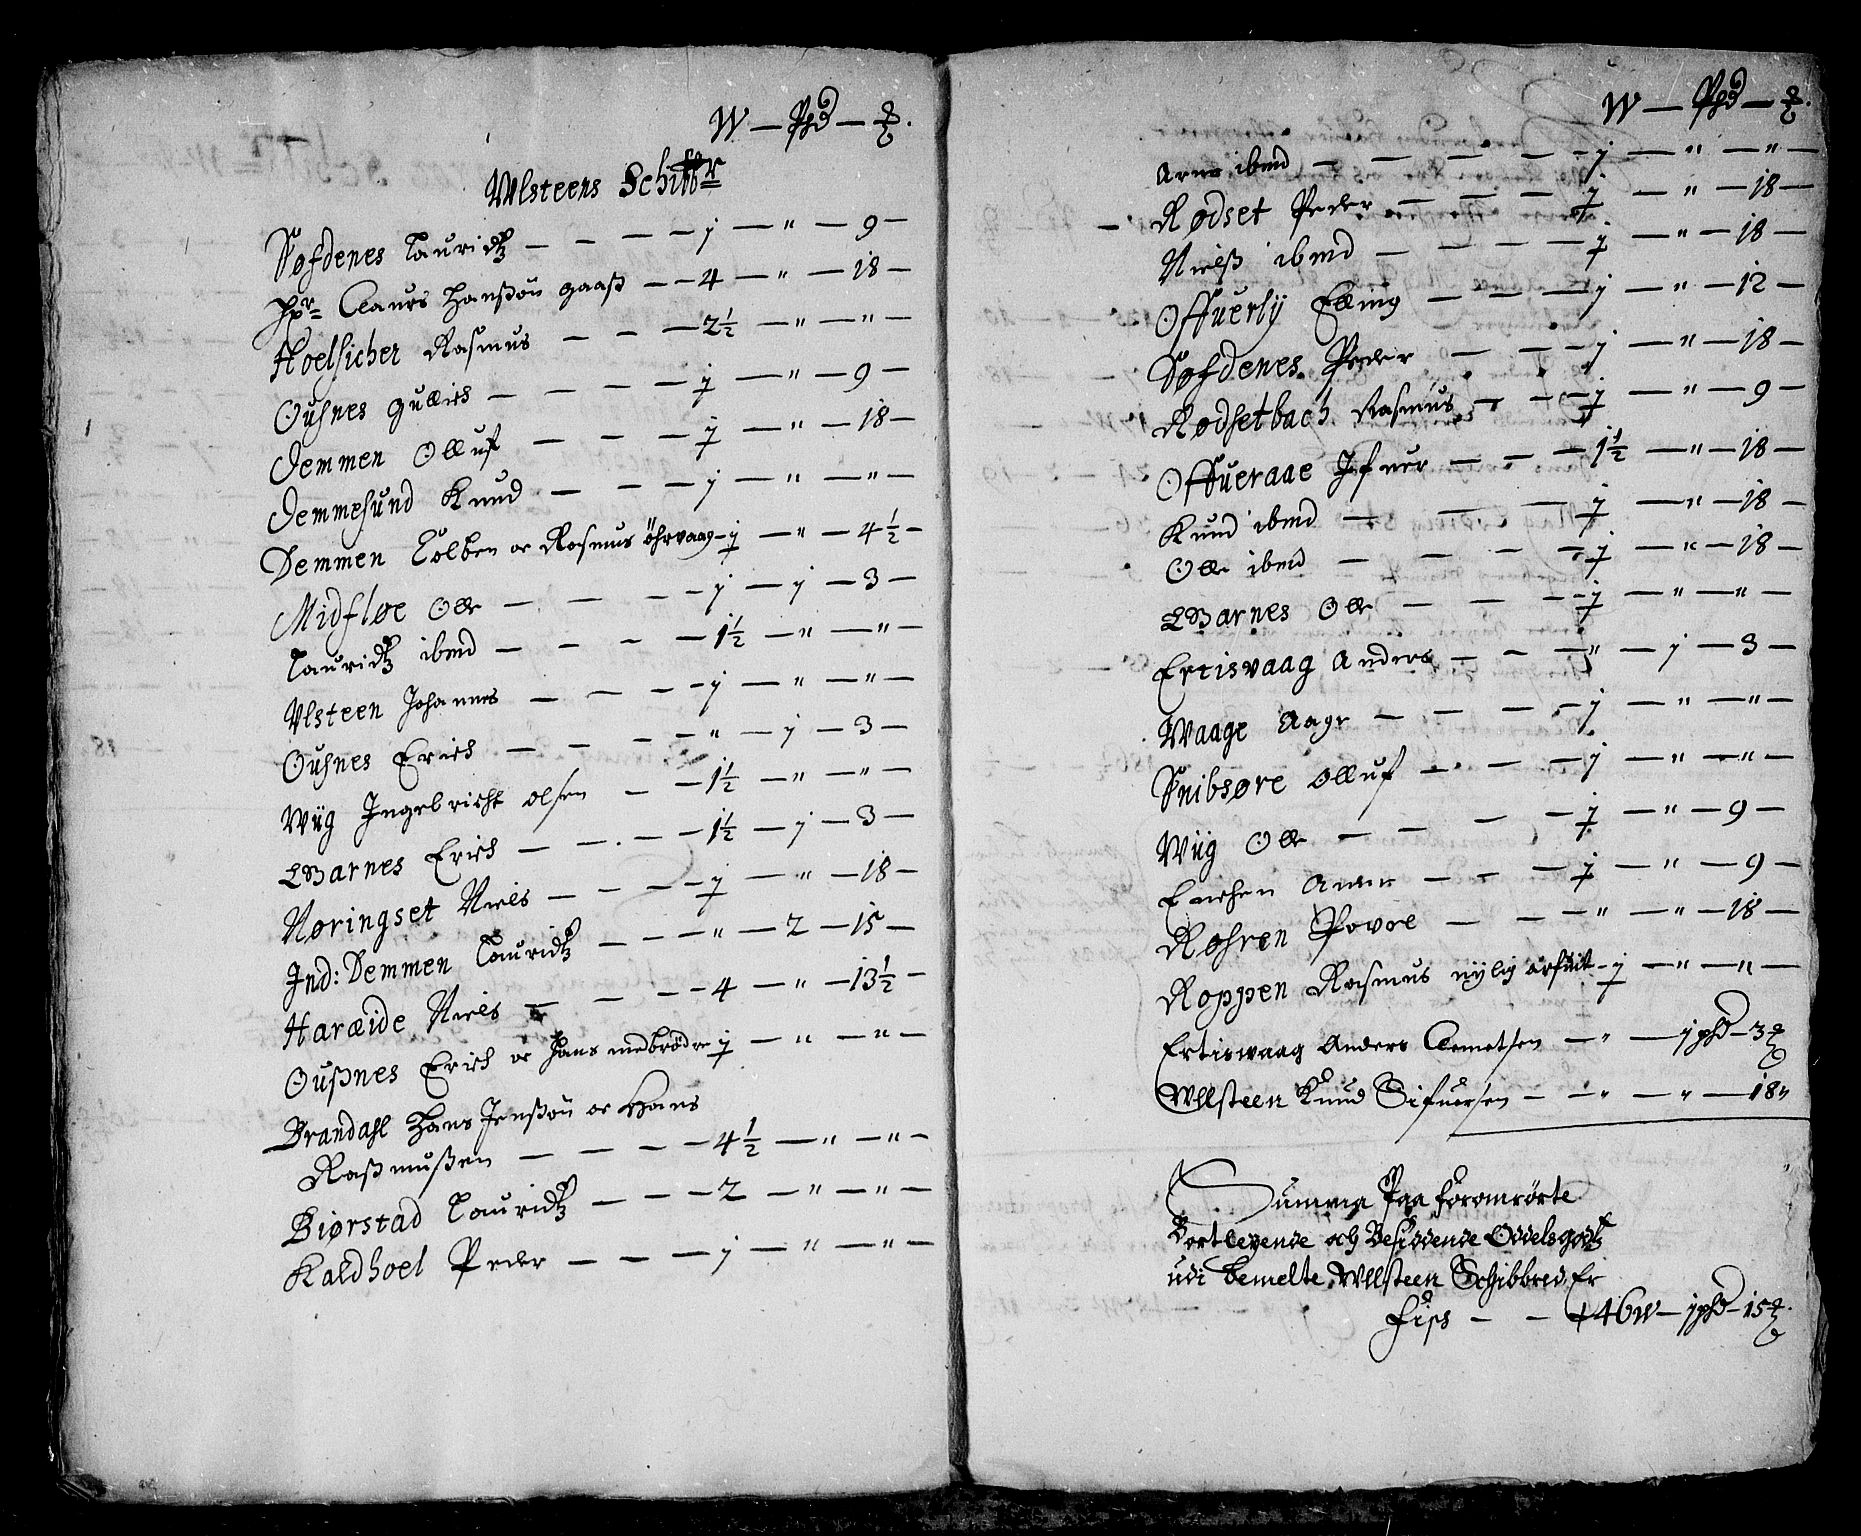 W — Phd — ℔.
Wlsteens Schibbr
Søfdenes Lauridtz — — — — j — " — 9 —
Hr Claurs Hanßøn gaaß — — 4 — " — 18 —
Hoelsicher Rasmus — — — 2½ — " — " —
Oußnes Gullich — — — — j — " — 9 —
Demmen Olluf — — — — j — " — 18 —
Demmesund Knud — — — — j — " — " —
Demmen Colben oc Rasmus öhrvaag — j — " — 4½ —
Midfløe Olle — — — — j — j — 3 —
Lauridtz ibmd — — — — 1½ — " — " —
Vlsteen Johannes — — — — j — " — " —
Oußnes Erich — — — — " — j — 3 —
Wiig Ingebricht olsen — — 1½ — " — " —
Warnes Erich — — — — 1½ — j — 3 —
Nøringset Niels — — — — j — " — 18 —
Ind: Demmen Lauridtz — — — " — 2 — 15 —
Haræide Niels — — — — 4 — " — 13½ —
Oußnes Erich oc Hans medbrödre j — " — " —
Brandahl Hans Jenßøn oc Hans
Raßmußen — — — — 4½ — " — " —
Biørstad Lauridtz — — — 2 — " — " —
Kaldhoel Peder — — — j — " — " —
W — Phd — ℔.
Arne ibmd — — — — — j — " — " —
Rødset Peder — — — — j — " — 18 —
Nielß ibmd — — — — j — " — 18 —
Offuerlij Elling — — — j — " — 12 —
Søfdenes Peder — — — j — " — 18 —
Rødsetbach Rasmus — — j — " — 9 —
Offueraae Ifuer — — — 1½ — " — 18 —
Knud ibmd — — — — j — " — 18 —
Olle ibmd — — — — j — " — 18 —
Warnes Olle — — — — j — " — " —
Ertisvaag Anders — — — " — j — 3 —
Waage Aage — — — — j — " — " —
Snibsøre Olluf — — — — j — " — " —
Wiig Olle — — — — j — " — 9 —
Enehen — — — j — " — 9 —
Røhren Povel — — — " — " — 18 —
Roppen Rasmus nylig arfuit — j — " — " —
Ertiswaag Anders Clemetsen — " — j phd — 3 ℔
Wllsteen Knud Sifuersen — — " — " — 18 "
Summa Paa foromrörte
Bortleyende och Besiddende Oddelsgodtz
udi bemelte Wllsteen Schibbred Er
Fips — — 46 W — j phd — 15 ℔.